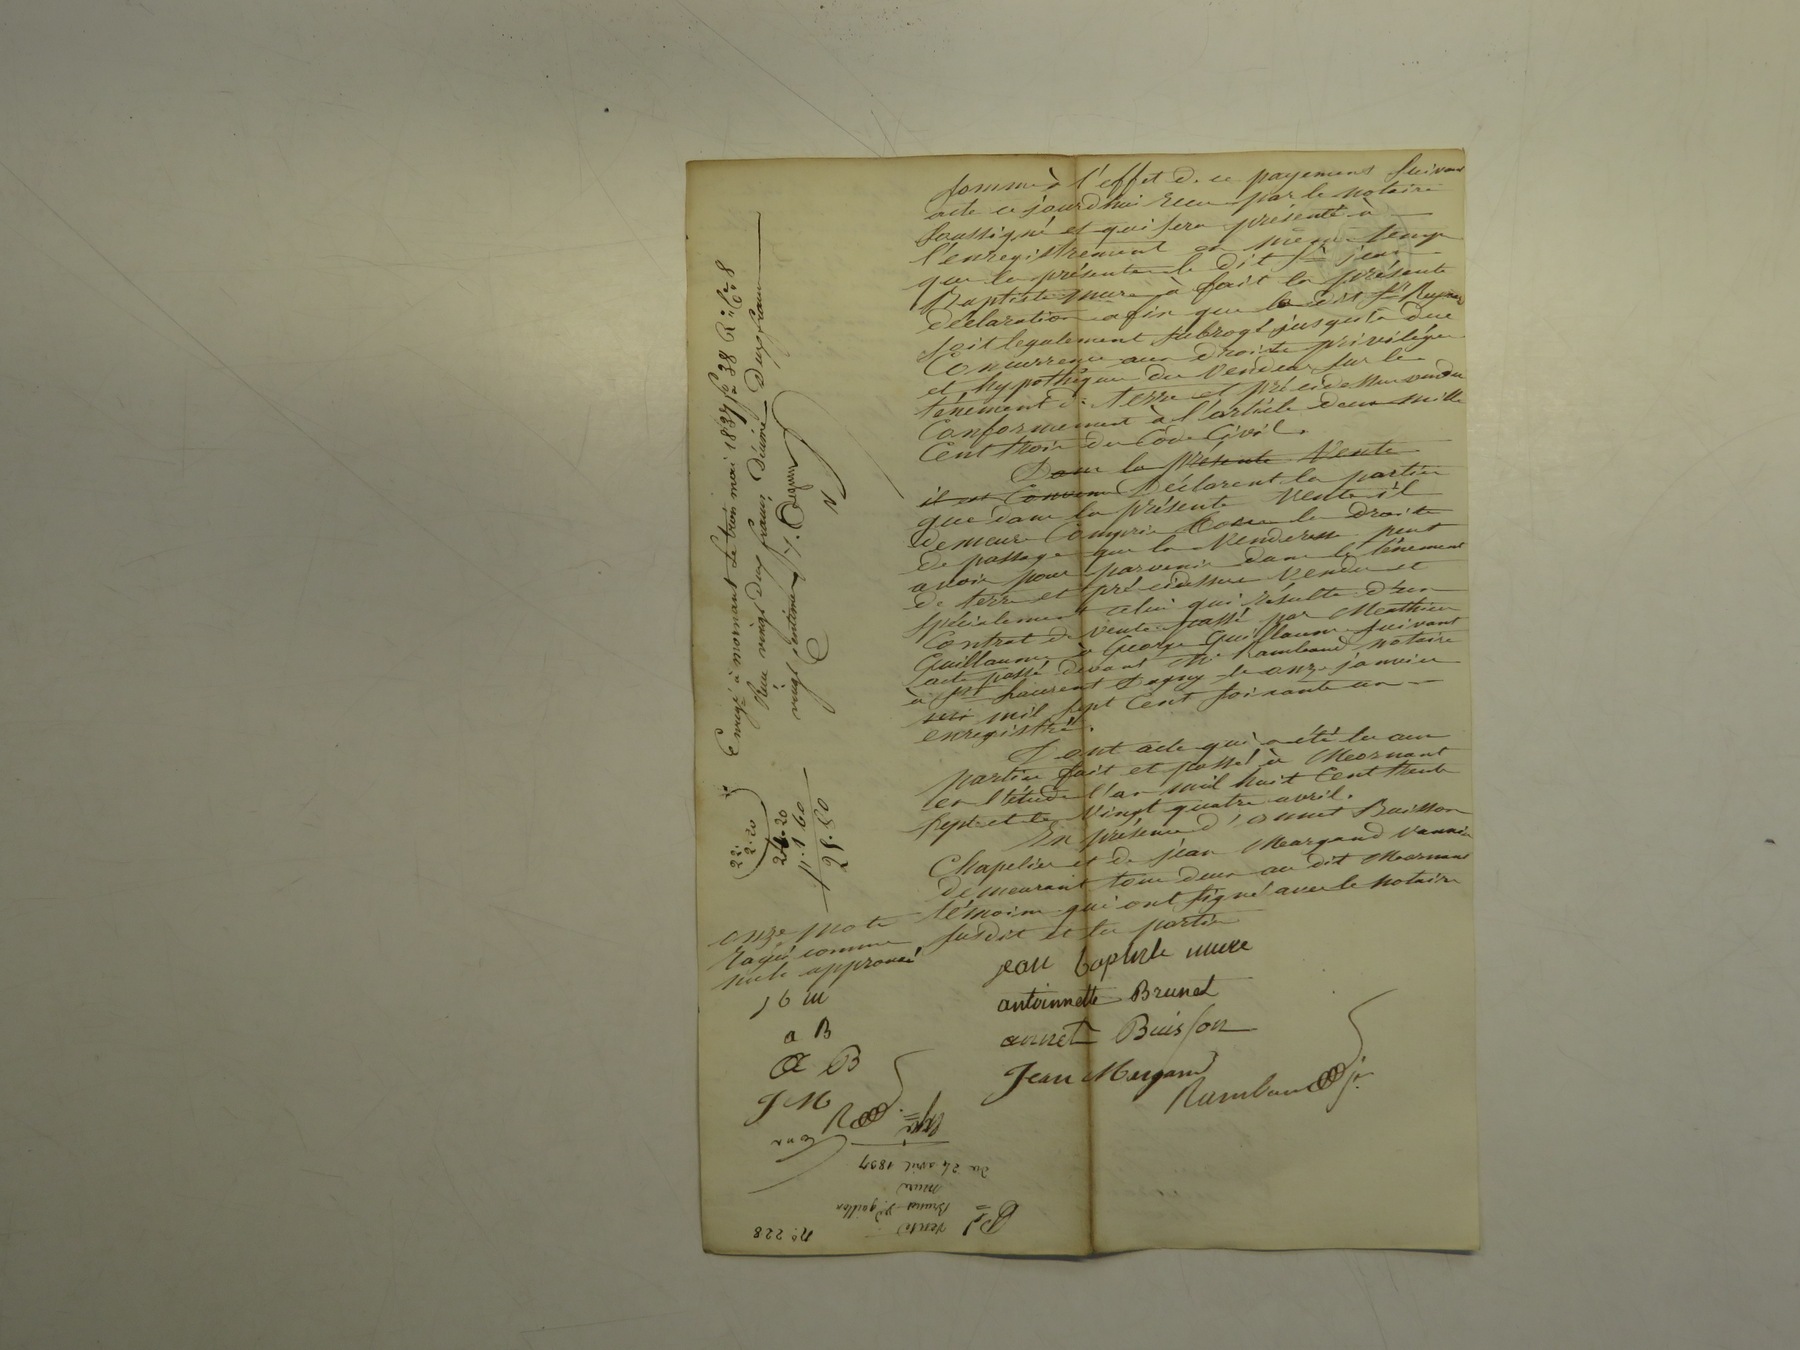 somme à l'effet de ce payement suivant
acte ce jourd'hui reçu par le notaire
soussigné et qui sera présenté à
l'enregistrement en même temps
que la présente le dit Sr jean
Baptiste mure à fait la présente
déclaration afin que le dit Sr
soit légalement subrogé jusqu'à due
Concurrence aux droits privilèges
et hypothèques du vendeur sur le
tènement de terre et pré cidessus vendu
Conformément à l'article deux mille
Cent trois du Code Civil.
Dans la présente Vente
il est Convenu Déclarent les parties
que dans la présente Vente il
demeure Compris tous les droits
de passage que la Venderesse peut
avoir pour parvenir dans le tènement
de terre et pré cidessus vendu et
spécialement celui qui résulte d'un
Contrat de vente passé par Matthieu
Guillaume à George Guillaume suivant
acte passé devant Me Rambaud notaire
à St Laurent Dagny le onze janvier
mil sept Cent soixante un
enregistré.
Dont acte qui a été lu aux
parties fait et passé à Mornant
en l'étude l'an mil huit Cent trente
sept et le Vingt quatre avril.
En présence d'annet Buisson
Chapelier et de jean Margand vannier
demeurant tous deux au dit Mornant
témoins qui ont signé avec le notaire
susdit et les parties
jean baptiste mure
antoinnette Brunet
annet Buisson
Jean Margand
Rambaud jne
onze mots
rayés comme
nuls approuvés
j b m
a B
a B
J M
R
Enregé à mornant le trois mai 1837 fo 38 Ro Ce 8
Reçu vingt deux francs Décime Deux francs
vingt centimes
22.
2.20
24.20
1.60
25.80
No. 228
Vente
Brunet
Mure
du 24 avril 1837